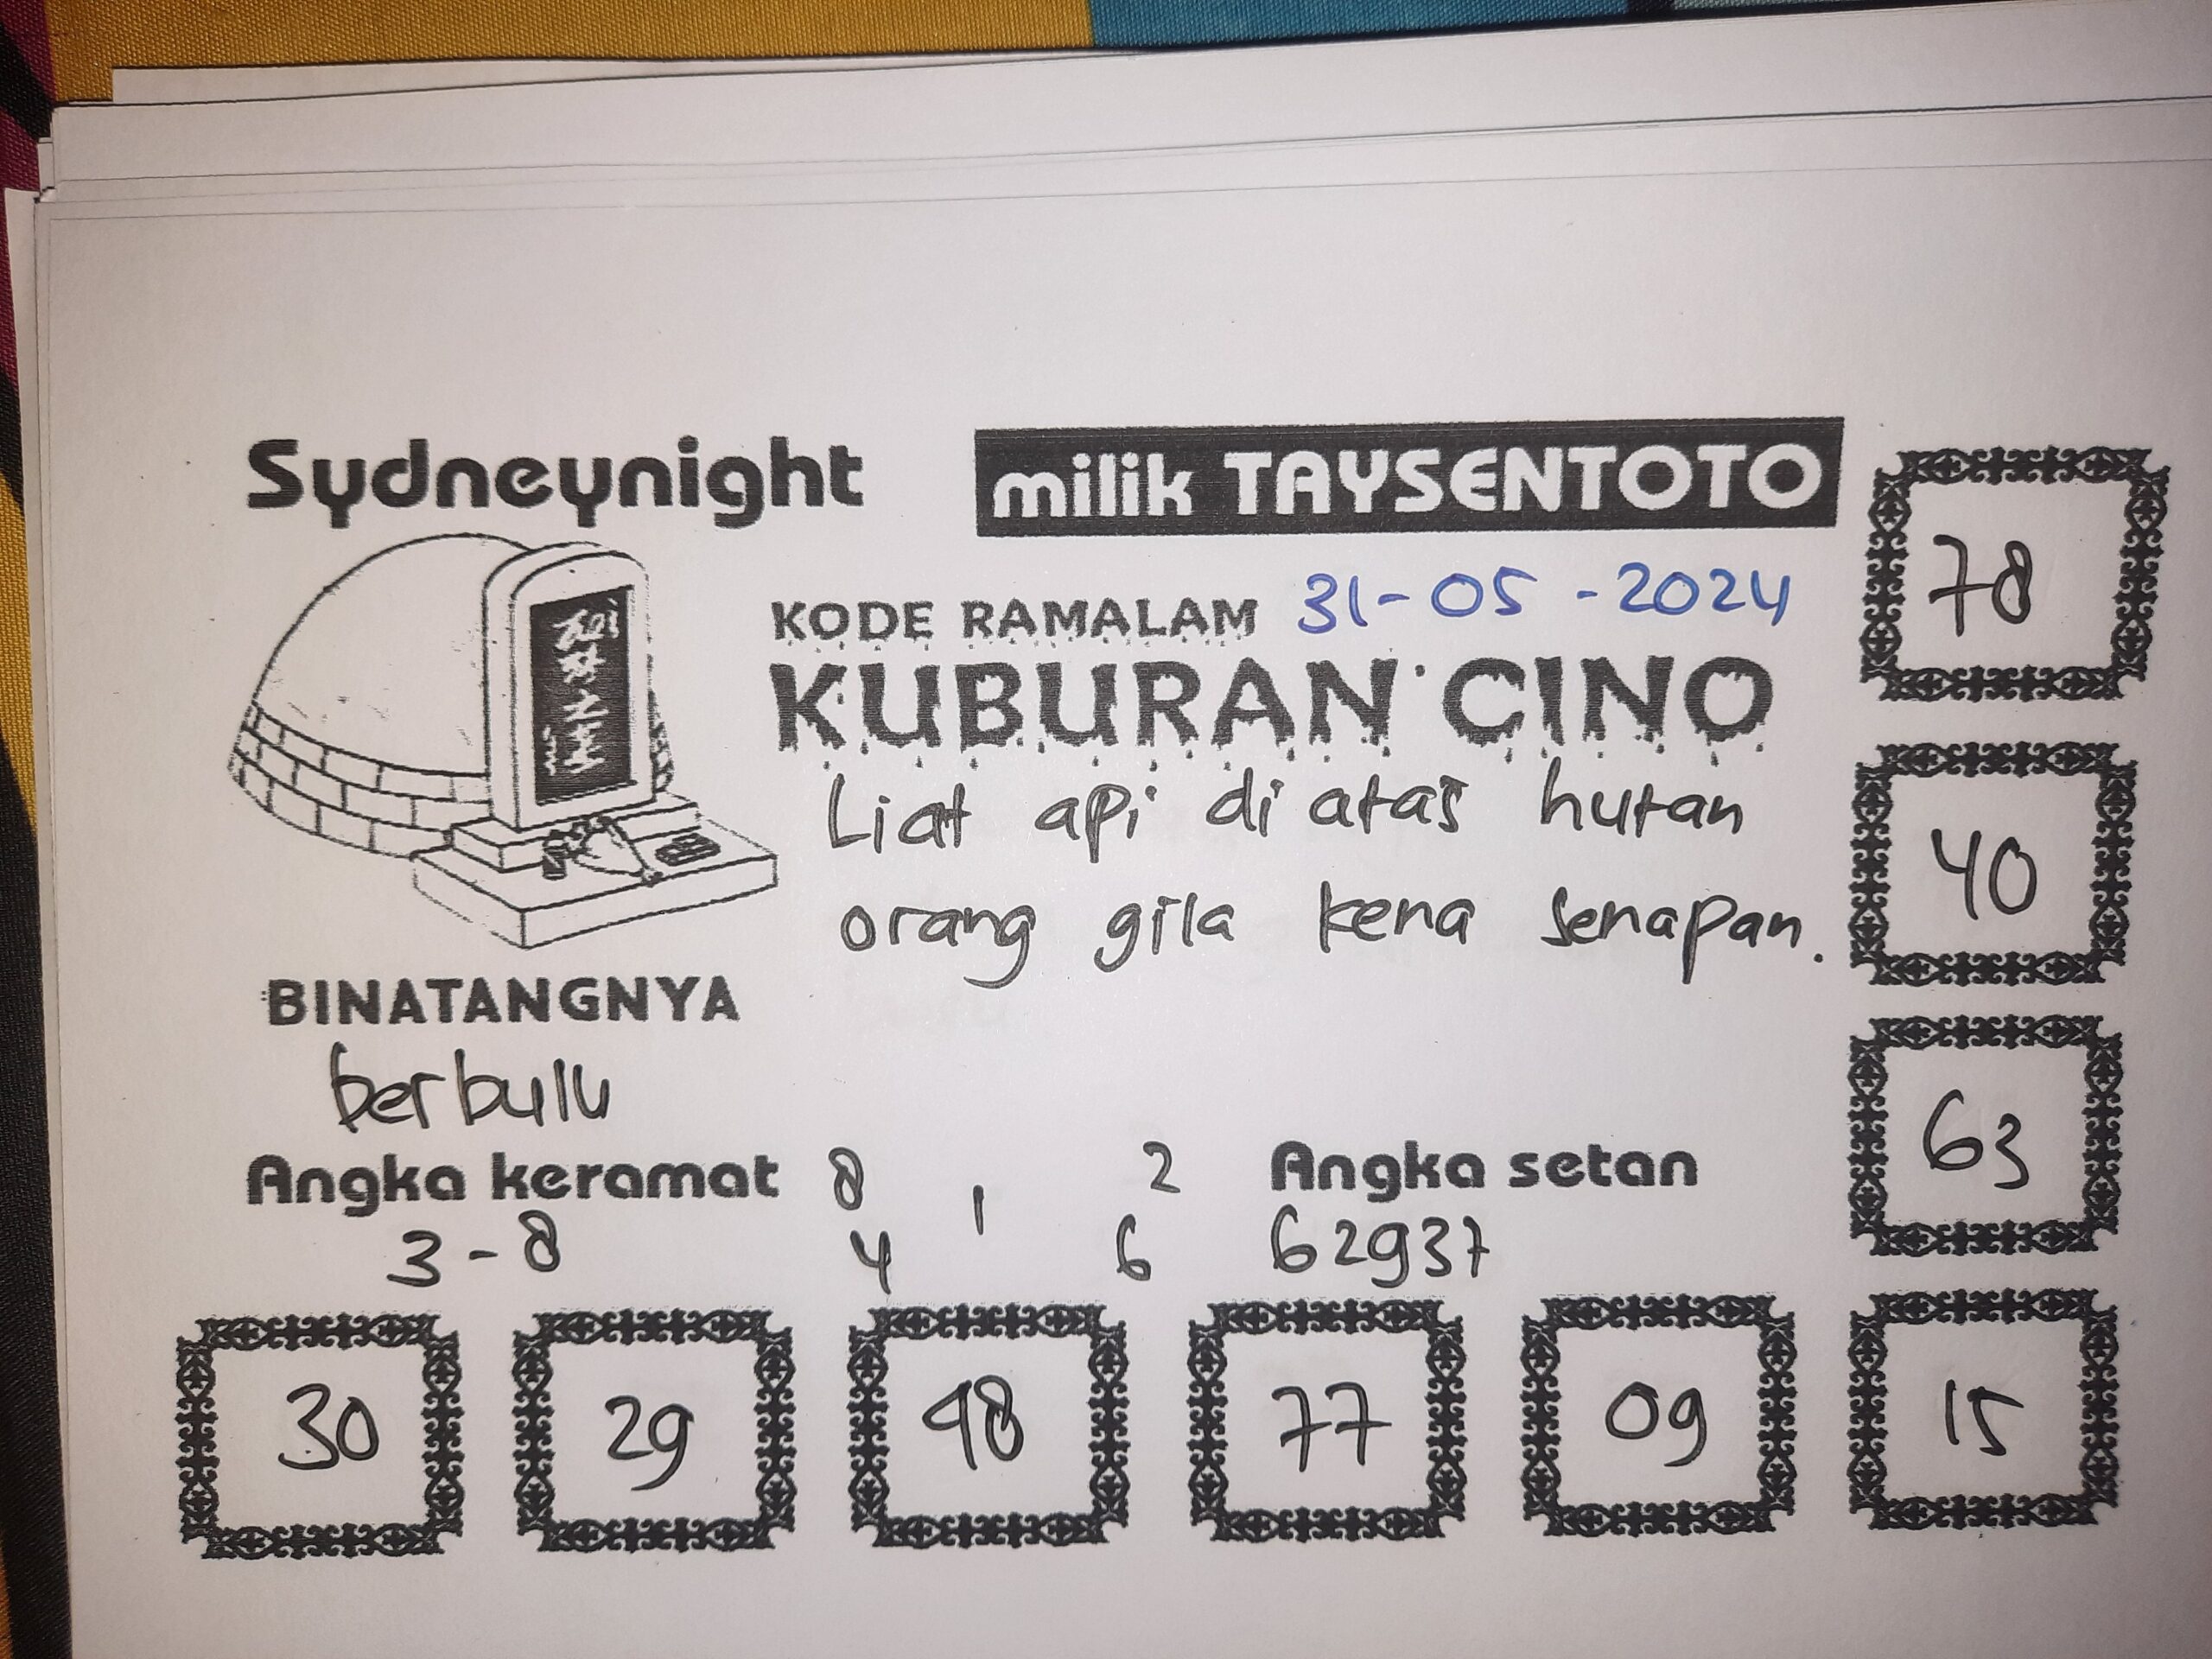 Sydneynight
milik TAYSENTOTO
78
KODE RAMALAM 31-05-2024
KUBURAN CINO
Liat api di atas hutan
40
orang gila kena senapan.
BINATANGNYA
berbulu
63
Angka keramat 8 1 2 Angka setan
3-8 4 6 62937
30 29 98 77 09 15